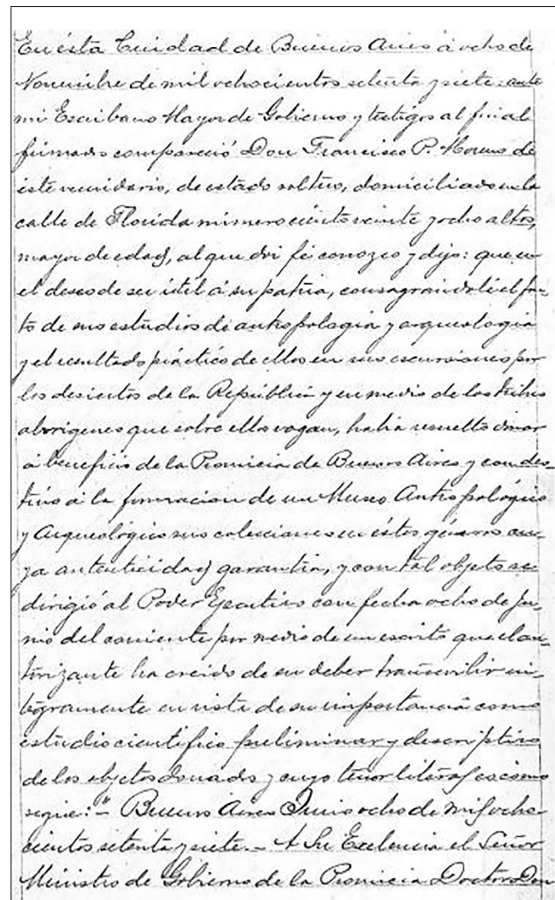 En ésta Ciudad de Buenos Aires á ocho de
Noviembre de mil ochocientos setenta y siete: ante
mi Escribano Mayor de Gobierno y testigos al final
firmados compareció Don Francisco P. Moreno de
este vecindario, de estado soltero, domiciliado en la
calle de Florida número ciento veinte y ocho altos,
mayor de edad, al que doi fé conozco y dijo: que en
el deseo de ser útil á su patria, consagrandole el fru-
to de sus estudios de antropologia y arqueologia
y el resultado práctico de ellos en sus escursiones por
los desiertos de la República y en medio de las tribus
aborigenes que sobre ellos vagan, habia resuelto donar
á beneficio de la Provincia de Buenos Aires y con des-
tino á la formacion de un Museo Antropológico
y Arqueológico sus colecciones en éstos géneros cu-
ya autenticidad garantia, y con tal objeto se
dirigió al Poder Ejecutivo con fecha ocho de Ju-
nio del corriente por medio de un escrito que el au-
torizante ha creido de su deber transcribir in-
tegramente en vista de su importancia como
estudio cientifico preliminar y descriptivo
de los objetos donados y cuyo tenor literal es como
sigue: "- Buenos Aires Junio ocho de mil ocho-
cientos setenta y siete. - A Su Exelencia el Señor
Ministro de Gobierno de la Provincia Doctor Don